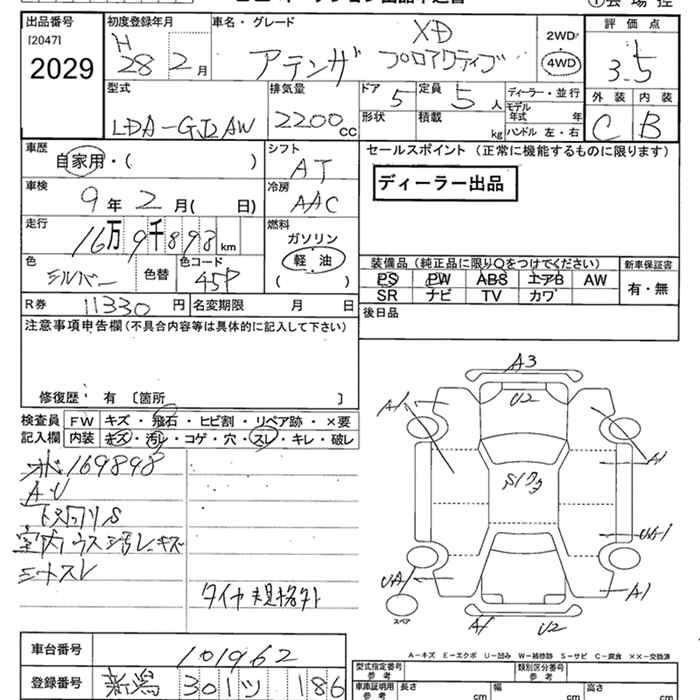 出品番号
[2047]
2029
初度登録年月
H
28 2 月
車名・グレード
XD
アテンザ プロアクティブ
2WD
4WD
評価点
3.5
型式
LDA-GJ2AW
排気量
2200cc
ドア
5
定員
5人
形状
積載
kg
ディーラー・並行
モデル年式 年
ハンドル 左・右
外装
C
内装
B
車歴
自家用・( )
シフト
AT
セールスポイント (正常に機能するものに限ります)
ディーラー出品
車検
9年 2月( 日)
冷房
AAC
走行
16万9千898km
燃料
ガソリン
軽油
( )
色
シルバー
色替
色コード
45P
装備品 (純正品に限り○をつけてください)
PS PW ABS エアB AW
SR ナビ TV カワ
新車保証書
有・無
R券 11330 円
名変期限 月 日
後日品
注意事項申告欄 (不具合内容等は具体的に記入して下さい)
修復歴: 有 〔箇所 〕
検査員記入欄
FW キズ・飛石・ヒビ割・リペア跡・×要
内装 キズ・汚レ・コゲ・穴・スレ・キレ・破レ
169898
AU
下廻りS
室内ウス汚レキズ
シートスレ
タイヤ規格外
A3
U2
A1
A1
Sワク
UA1
A1
スペア
A1
U2
A-キズ E-エクボ U-凹み W-補修跡 S-サビ C-腐食 ××-交換済
車台番号
101962
登録番号
新潟 301 ツ 186
型式指定番号
参考
類別区分番号
参考
車庫証明用
参考
長さ cm
幅 cm
高さ cm